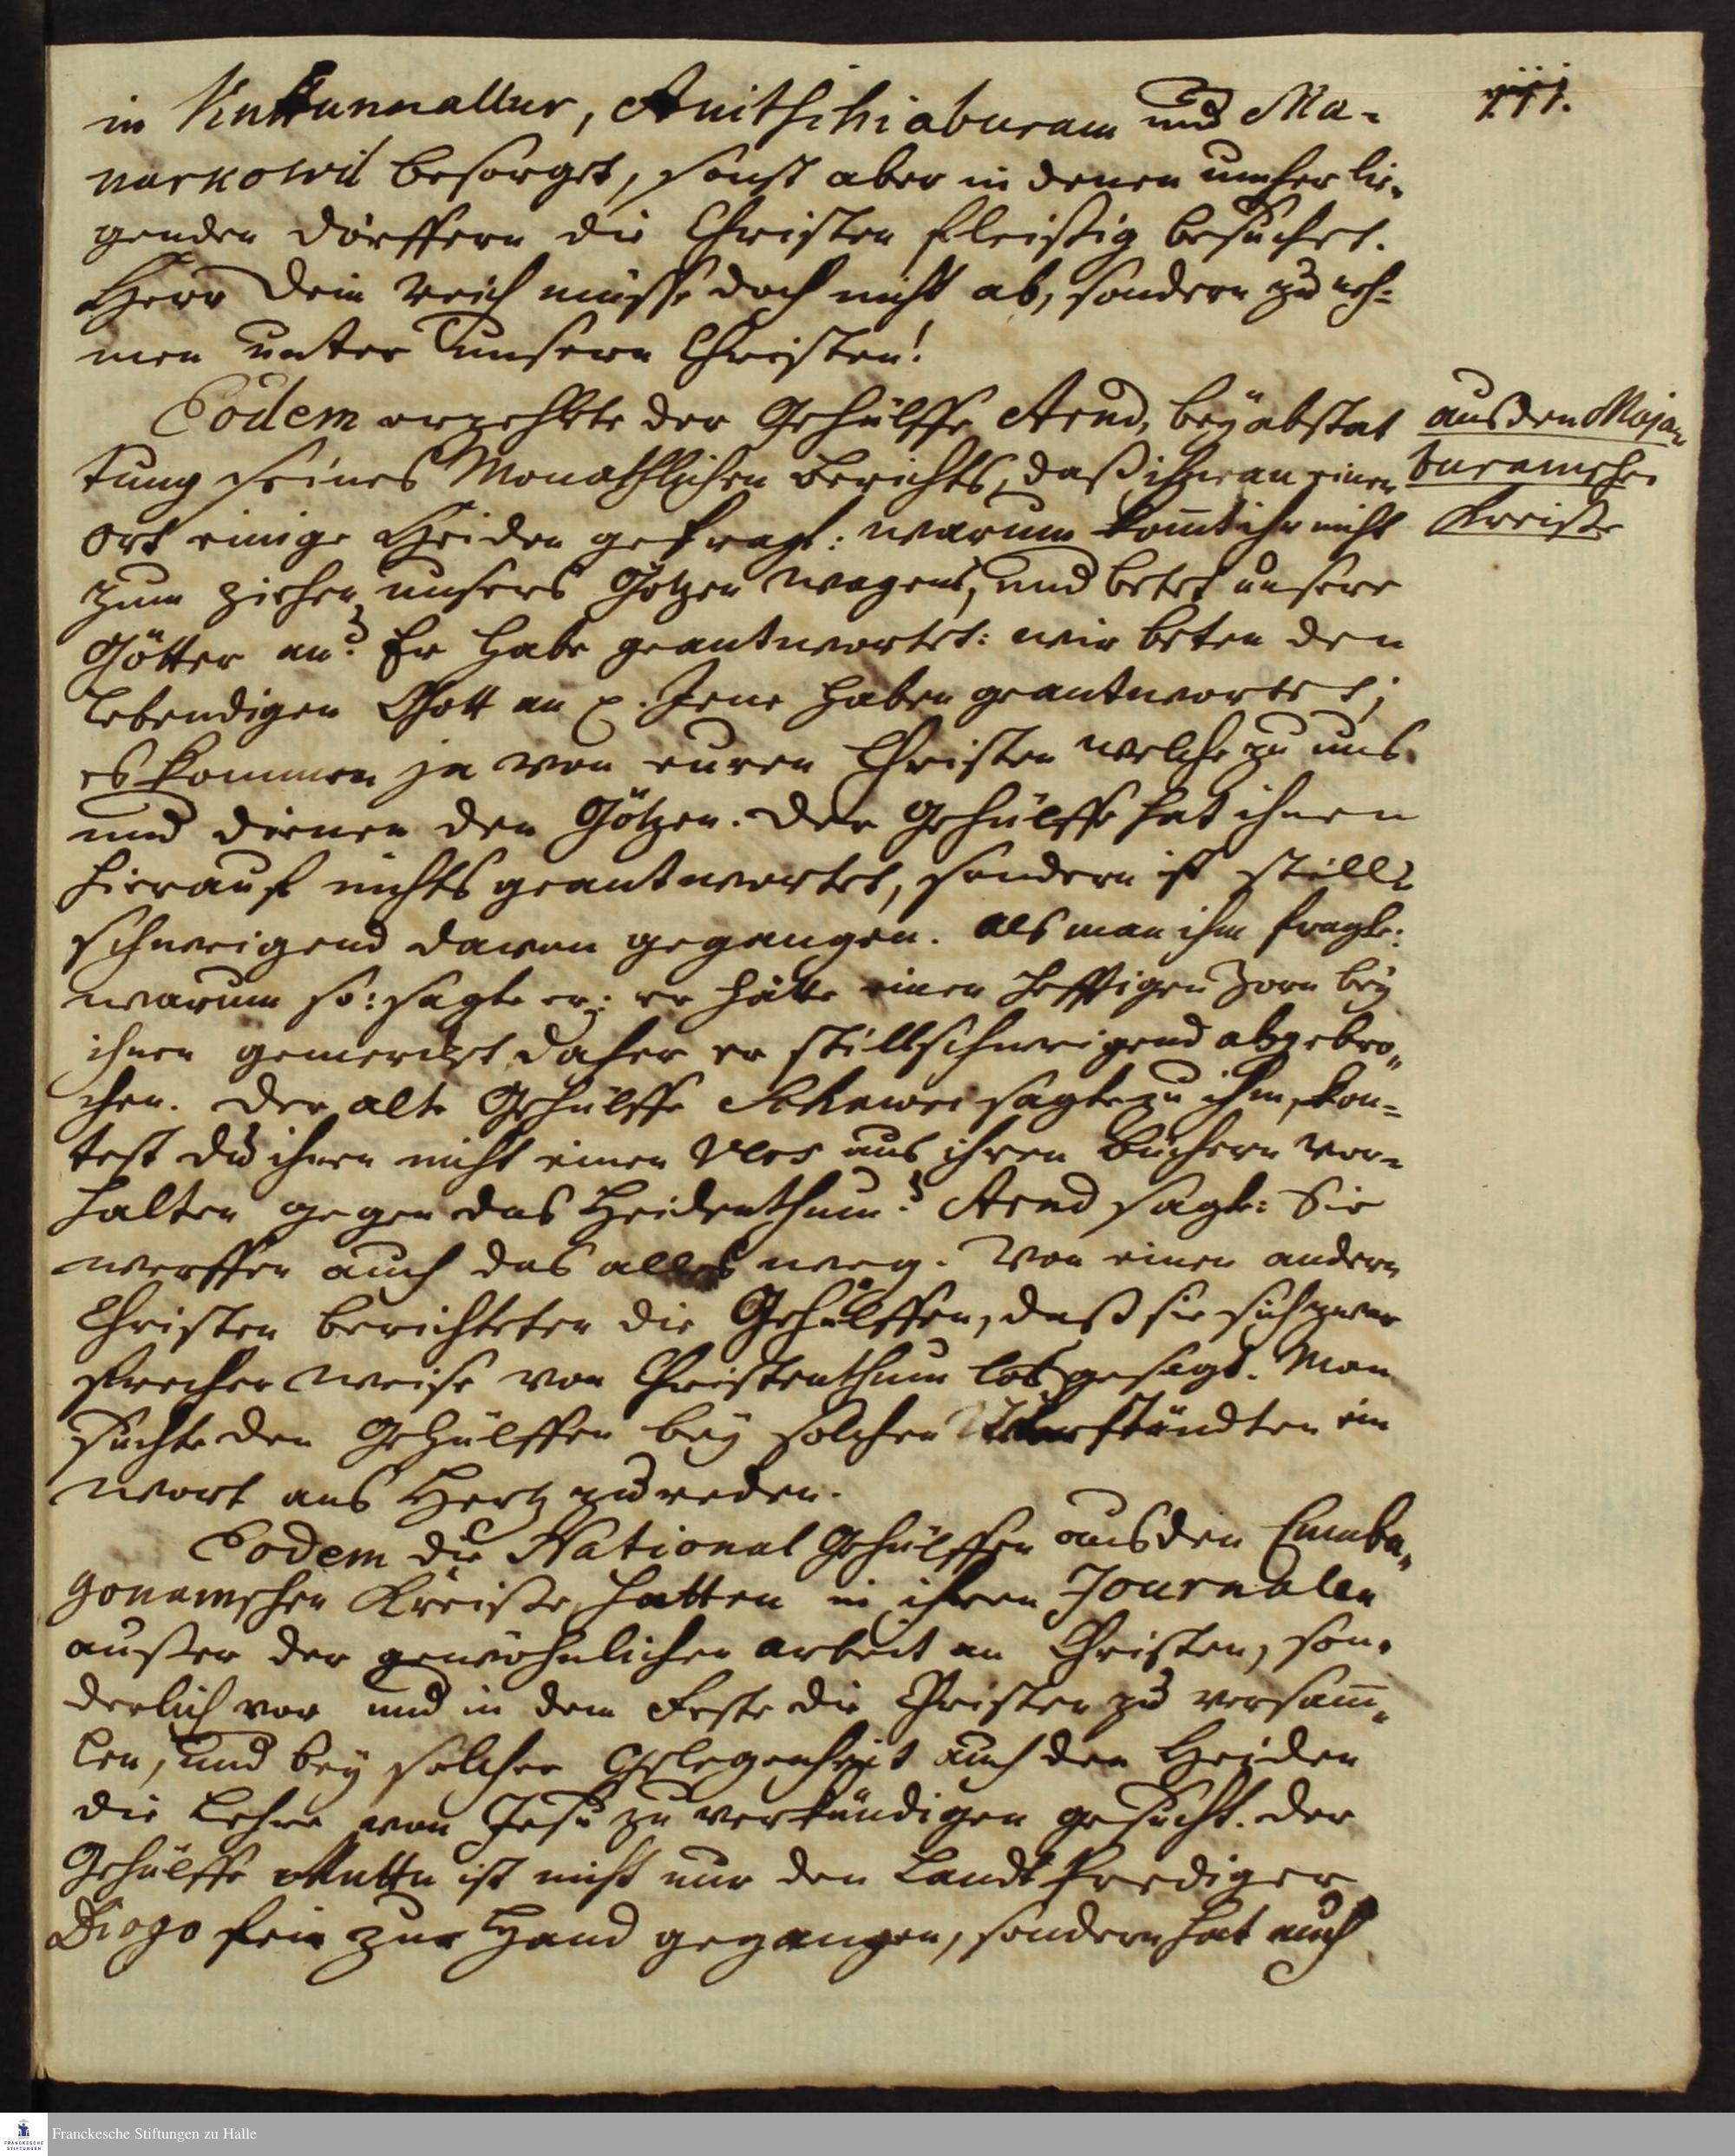 in Kuttunnallur, Anitschiaburam und Ma-
narkowil besorget, sonst aber in denen umher lie-
genden Dörffern die Christen fleißig besuchet.
Herr Dein Reich müsse doch nicht ab, sondern zu neh-
men unter unsern Christen!
Eodem erzehlte der Gehülffe Arud, bey abstat
tung seines Monathlichen Berichts, daß ihn an einem
Ort einige Heiden gefragt: warum komt ihr nicht
zum ziehen unsers Götzen wagens, und betet unsere
Götter an? Er habe geantwortet: wir beten den
lebendigen Gott an p. Jene haben geantwortet;
es kommen ja von euren Christen welche zu uns
und dienen den Götzen. Der Gehülffe hat ihnen
hierauf nichts geantwortet, sondern ist still-
schweigend davon gegangen. Als man ihn fragte:
warum so: sagte er: er hätte einen hefftigen Zorn bey
ihnen gemercket daher er stillschweigend abgebro-
chen. Der alte Gehülffe Schawri sagte zu ihm, kon-
test du ihnen nicht einen Vers aus ihren Büchern vor-
halten gegen das Heidenthum? Arud sagte: Sie
werffen auch das alles weg. Von einen andern
Christen berichteten die Gehülffen, daß sie sich zwar
frecher Weise von Christenthum losgesagt. Man
suchte den Gehülffen bey solchen Umständten ein
wort ans Hertz zu reden.
Eodem die National Gehülffen aus den Cumba-
gonamschen Kreiße, hatten in ihren Journalen
außer der gewöhnlichen arbeit an Christen, son-
derlich vor und in dem Feste die Christen zu versam̅-
len, und bey solcher Gelegenheit auch den Heiden
die Lehre von Jesu zu verkündigen gesucht. Der
Gehülffe Muttu ist nicht nur den Landt Prediger
Diogo fein zur Hand gegangen, sondern hat auch
aus den Maja-
buramschen
Kreiße